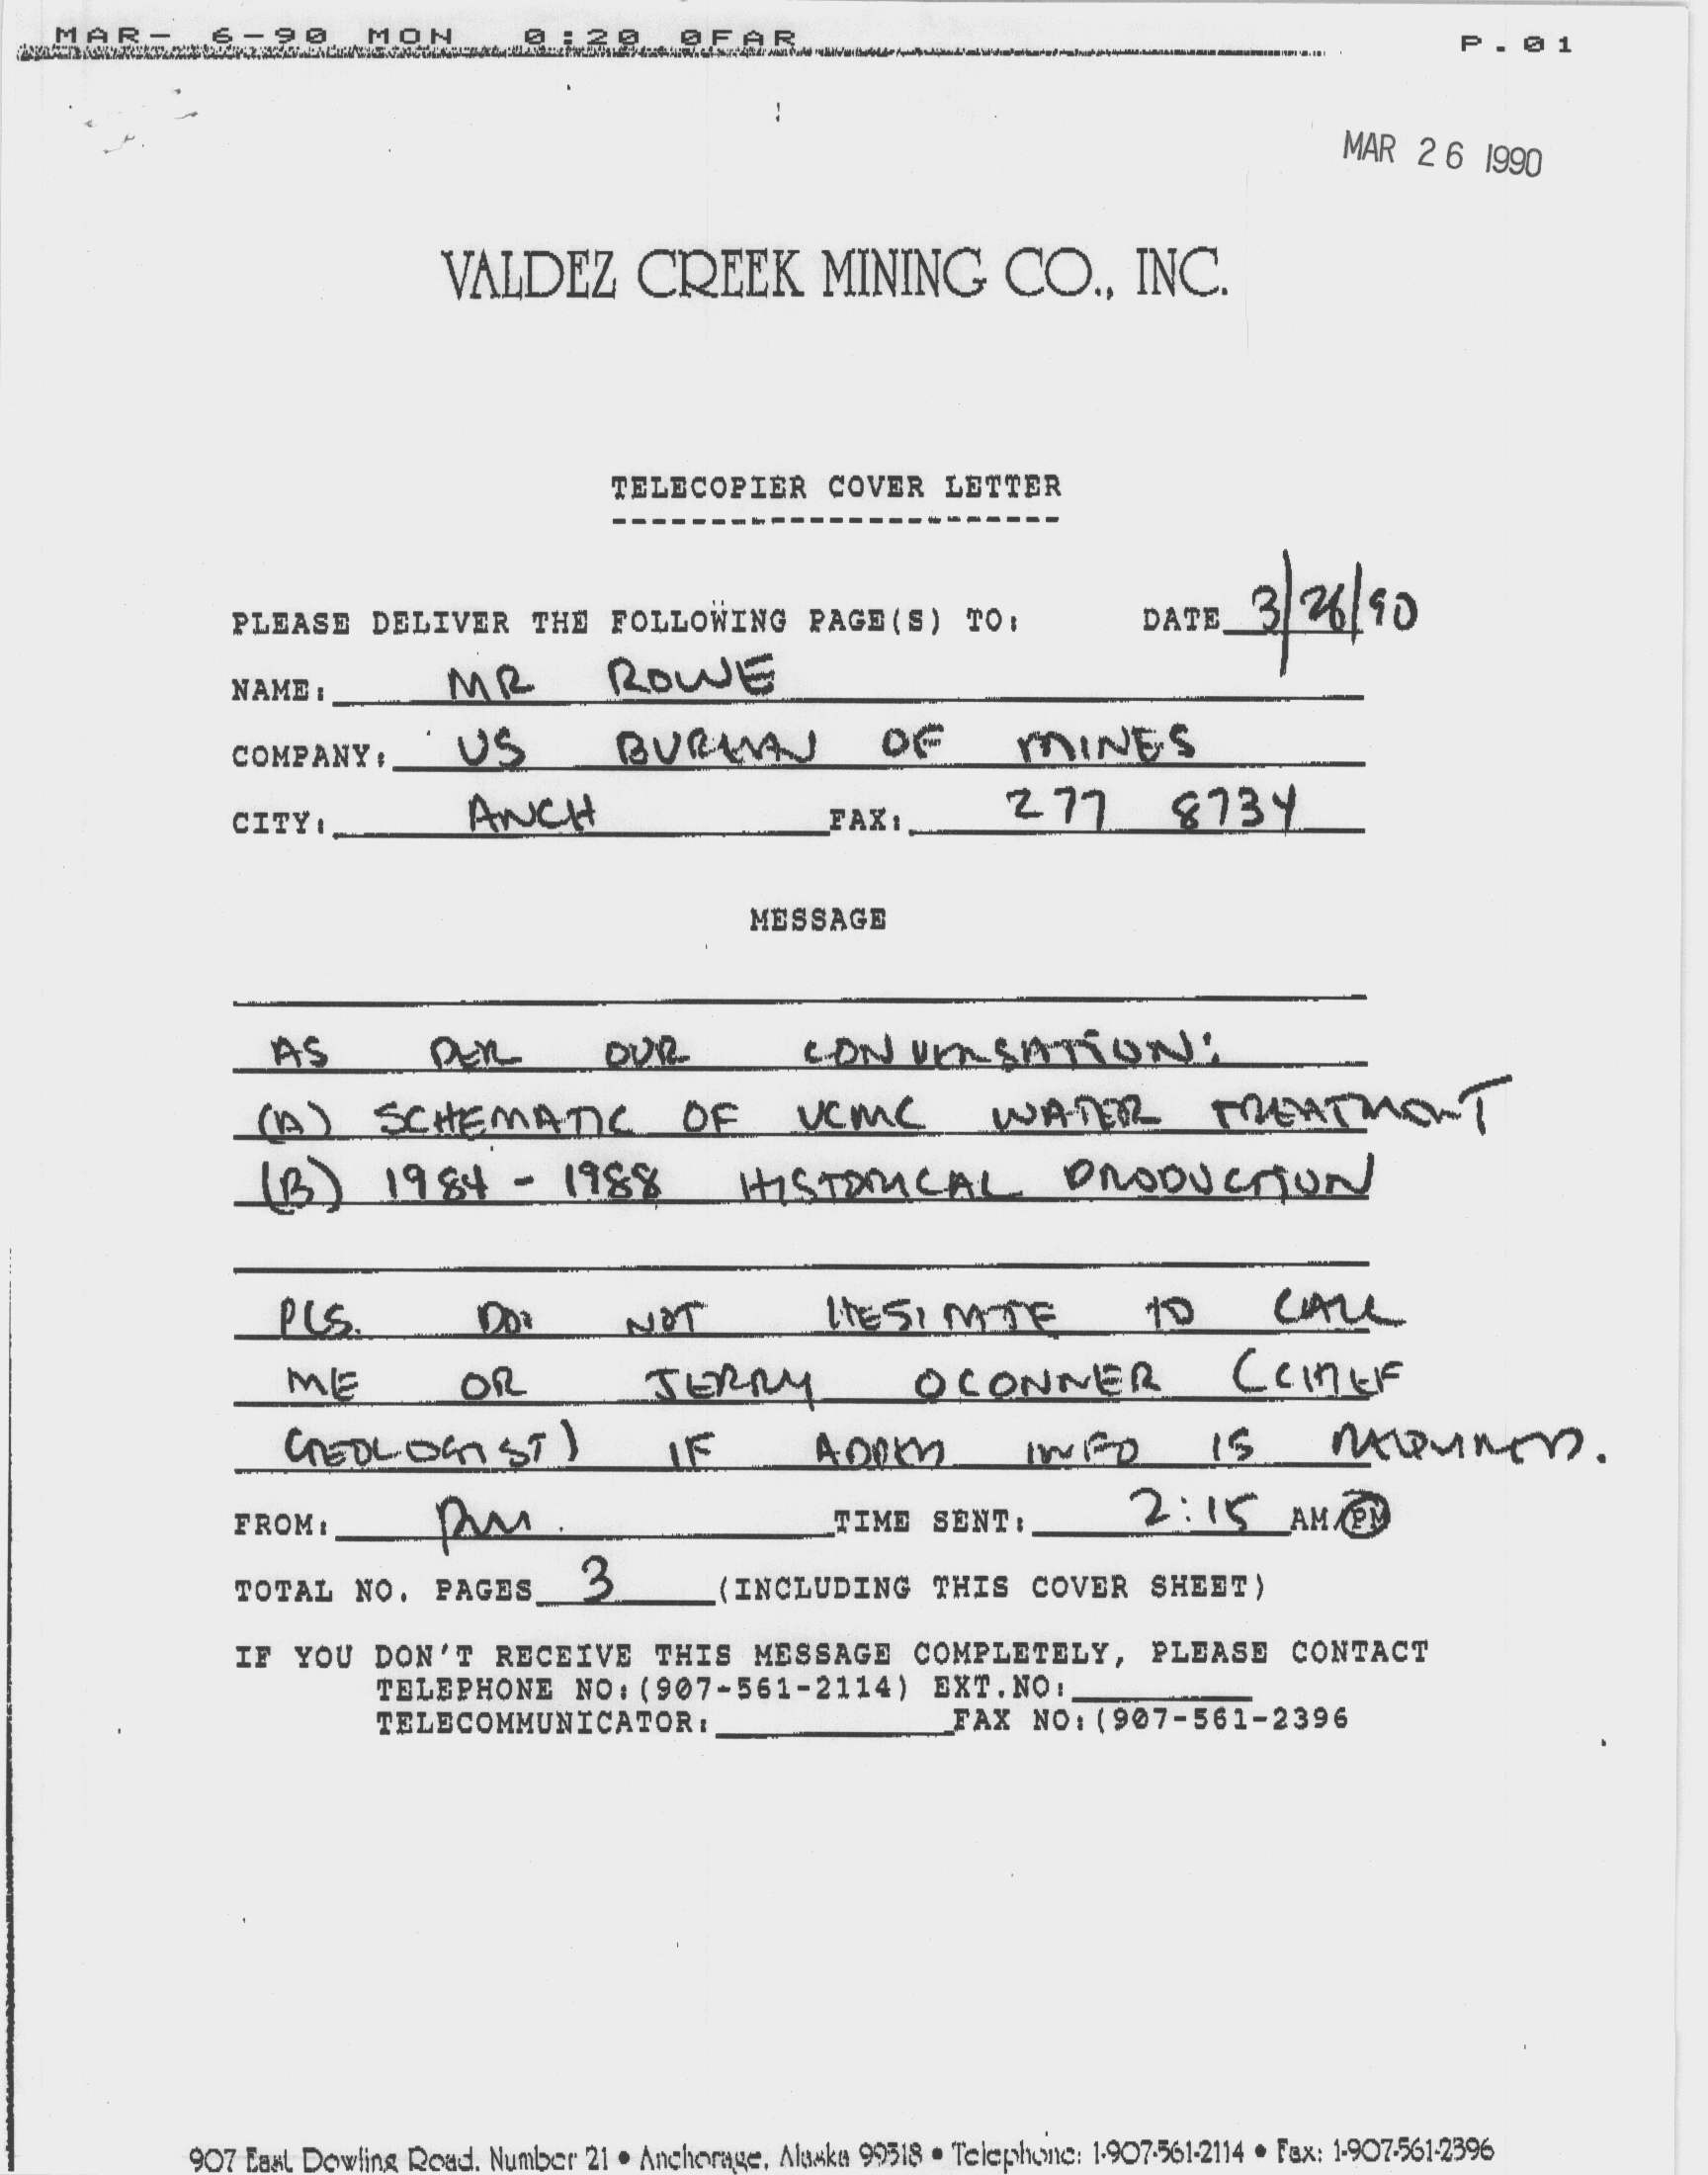 MAR- 6-90 MON 0:20 0FAR P.01
MAR 26 1990
VALDEZ CREEK MINING CO., INC.
TELECOPIER COVER LETTER
-----------------------
PLEASE DELIVER THE FOLLOWING PAGE(S) TO: DATE 3/26/90
NAME: MR ROWE
COMPANY: US BUREAU OF MINES
CITY: ANCH FAX: 277 8734
MESSAGE
AS PER OUR CONVERSATION:
(A) SCHEMATIC OF VCMC WATER TREATMENT
(B) 1984 - 1988 HISTORICAL PRODUCTION
PLS. DO NOT HESITATE TO CALL
ME OR JERRY OCONNER (CHIEF
GEOLOGIST) IF ADDED INFO IS REQUIRED.
FROM: TIME SENT: 2:15 AM/PM
TOTAL NO. PAGES 3 (INCLUDING THIS COVER SHEET)
IF YOU DON'T RECEIVE THIS MESSAGE COMPLETELY, PLEASE CONTACT
TELEPHONE NO:(907-561-2114) EXT.NO:
TELECOMMUNICATOR: FAX NO:(907-561-2396
907 East Dowling Road, Number 21 • Anchorage, Alaska 99518 • Telephone: 1-907-561-2114 • Fax: 1-907-561-2396